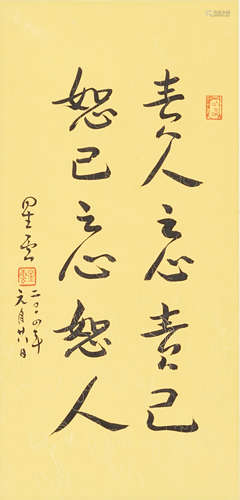 責人之心責己
恕己之心恕人
星雲
二〇一四年
元月廿八日